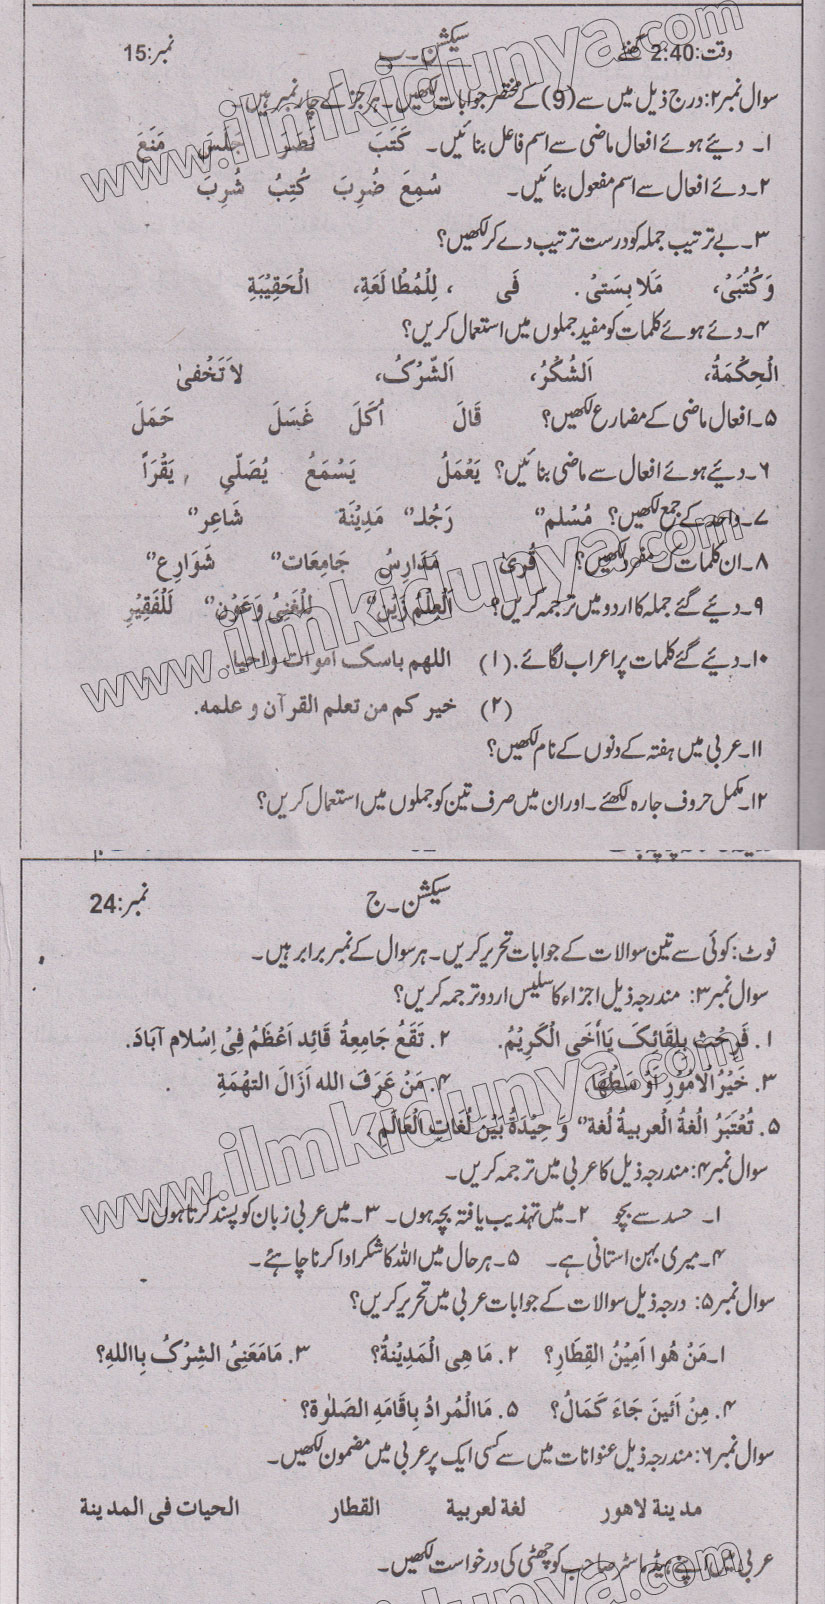 وقت:2:40 گھنٹے سیکشن۔ب نمبر:15
سوال نمبر۲: درج ذیل میں سے (9) کے مختصر جوابات لکھیں۔ ہر جز کے چار نمبر ہیں۔
۱۔ دیئے ہوئے افعال ماضی سے اسم فاعل بنائیں۔ کَتَبَ نَصَرَ جَلَسَ مَنَعَ
۲۔ دئے افعال سے اسم مفعول بنائیں۔ سُمِعَ ضُرِبَ کُتِبُ شُرِبَ
۳۔ بے ترتیب جملہ کو درست ترتیب دے کر لکھیں؟
وَکُتُبَیْ، مَلَا بِسَتیْ۔ فَی ، لِلْمُطَالَعَةِ، الْحَقِیْبَةِ
۴۔ دئے ہوئے کلمات کو مفید جملوں میں استعمال کریں؟
الْحِکْمَةُ، اَلشُکْرُ، اَلشِّرْکُ، لاَتَخْفیٰ
۵۔ افعال ماضی کے مضارع لکھیں؟ قَالَ اُکَلَ غَسَلَ حَمَلَ
۶۔ دیئے ہوئے افعال سے ماضی بنائیں؟ یَعْمَلُ یَسْمَعُ یُصَلّیِ , یَقْرَاً
۷۔ واحد کے جمع لکھیں؟ مُسْلم’’ رَجُلـ’’ مَدِیْنَة شَاعِر’’
۸۔ ان کلمات ک مفرد لکھیں؟ قُریٰ مَدَارِسُ جَامِعَات’’ شَوَارِع’’
۹۔ دیئے گئے جملہ کا اردو میں ترجمہ کریں؟ اَلْعِلْمُ زَیْن’’ لِلْغَنِیْ وَعَوْن’’ لَلْفَقِیْرِ
۱۰۔ دیئے گئے کلمات پر اعراب لگائے۔ (۱) اللهم باسک اموات واحیا.
(۲) خیر کم من تعلم القرآن و علمه.
۱۱۔ عربی میں ہفتہ کے دنوں کے نام لکھیں؟
۱۲۔ مکمل حروف جارہ لکھئے۔ اور ان میں صرف تین کو جملوں میں استعمال کریں؟
سیکشن۔ج نمبر:24
نوٹ: کوئی سے تین سوالات کے جوابات تحریر کریں۔ ہر سوال کے نمبر برابر ہیں۔
سوال نمبر۳: مندرجہ ذیل اجزاء کا سلیس اردو ترجمہ کریں؟
۱. فَرِحْتُ بِلِقَائِکَ یَااَخَی الْکَرِیْمُ. ۲. تَقَعُ جَامِعِةُ قَائِد اَعْظَمُ فِیْ اِسْلَام آبَادَ.
۳. خَیْرُ الْاُمُوْرِ اَوْ سَطُهَا ۴. مَنْ عَرَفَ الله اَزَالَ التهْمَةِ
۵. تُعْتَبَرُ الُغةُ الْعربیةُ لُغة’’ وَ حِیْدَةُ بَیْنَ لُغَاتِ الْعَالَمِ
سوال نمبر۴: مندرجہ ذیل کا عربی میں ترجمہ کریں۔
۱۔ حسد سے بچو ۲۔ میں تہذیب یافتہ بچہ ہوں۔ ۳۔ میں عربی زبان کو پسند کرتا ہوں۔
۴۔ میری بہن استانی ہے۔ ۵۔ ہر حال میں اللہ کا شکر ادا کرنا چاہئے۔
سوال نمبر۵: درجہ ذیل سوالات کے جوابات عربی میں تحریر کریں؟
۱۔ مَنْ هُوا اَمِیْنُ القِطَارِ؟ ۲. مَا هِی الْمَدِیْنةُ؟ ۳. مَامَعَنِیُ الشِرْکُ بِااللهِ؟
۴. مِنْ اَئینَ جَاءَ کَمَالُ؟ ۵. مَاالْمُرادُ بِاقَامَهِ الصَلٰوة؟
سوال نمبر۶: مندرجہ ذیل عنوانات میں سے کسی ایک پر عربی میں مضمون لکھیں۔
مدینة لاهور لغة لعربیة القطار الحیات فی المدینة
عربی میں اپنے ہیڈ ماسٹر صاحب کو چھٹی کی درخواست لکھیں۔
www.ilmkidunya.com
www.ilmkidunya.com
www.ilmkidunya.com